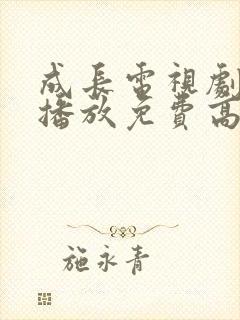 成長電視劇
播放免費高
施永青